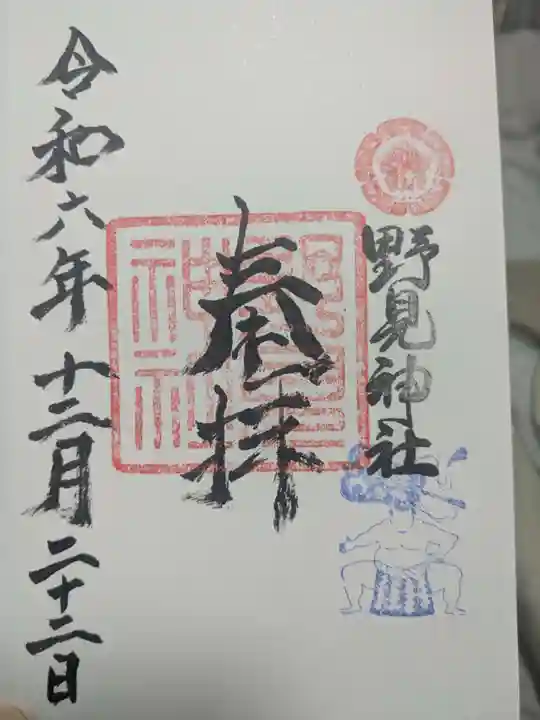 野見神社
奉拝
令和六年十二月二十二日